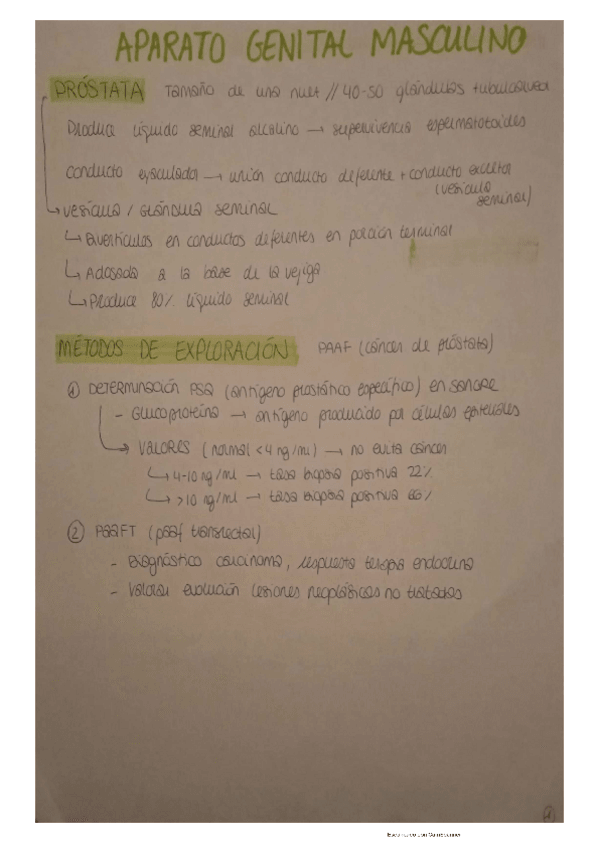 APARATO GENITAL MASCULINO
PRÓSTATA Tamaño de una nuez // 40-50 glándulas
Produce líquido seminal alcalino → supervivencia espermatozoides
Conducto eyaculador → unión conducto deferente + conducto excretor
(vesícula
seminal)
→ VESÍCULA / GLÁNDULA SEMINAL
↳ Divertículos en conductos deferentes en porción terminal
↳ Adosada a la base de la vejiga
↳ Produce 80% líquido seminal
MÉTODOS DE EXPLORACIÓN PAAF (cáncer de próstata)
① DETERMINACIÓN PSA (antígeno prostático específico) en sangre
- Glucoproteína → antígeno producido por células epiteliales
→ VALORES (normal <4 ng/ml) → no evita cáncer
↳ 4-10 ng/ml → tasa biopsia positiva 22%
↳ >10 ng/ml → tasa biopsia positiva 66%
② PAAFT (paaf transrectal)
- Diagnóstico carcinoma, respuesta terapia endocrina
- Valorar evolución lesiones neoplásicas no tratadas
Escaneado con CamScanner